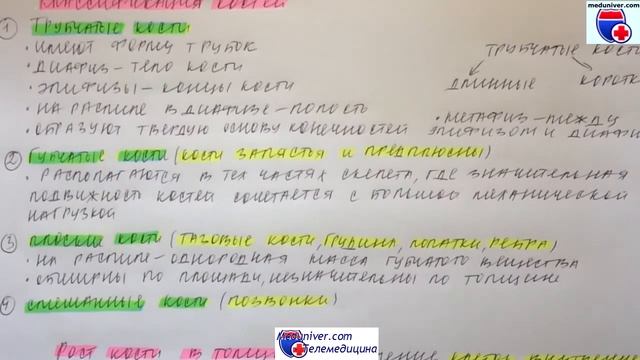 КЛАССИФИКАЦИЯ КОСТЕЙ
meduniver.com
1 ТРУБЧАТЫЕ КОСТИ
• ИМЕЮТ ФОРМУ ТРУБОК
• ДИАФИЗ – ТЕЛО КОСТИ
• ЭПИФИЗЫ – КОНЦЫ КОСТИ
• НА РАСПИЛЕ В ДИАФИЗЕ – ПОЛОСТЬ
• ОБРАЗУЮТ ТВЕРДУЮ ОСНОВУ КОНЕЧНОСТЕЙ
ТРУБЧАТЫЕ КОСТИ
ДЛИННЫЕ КОРОТК
• МЕТАФИЗ – МЕЖДУ
ЭПИФИЗОМ И ДИАФИ
2 ГУБЧАТЫЕ КОСТИ (КОСТИ ЗАПЯСТЬЯ И ПРЕДПЛЮСНЫ)
• РАСПОЛАГАЮТСЯ В ТЕХ ЧАСТЯХ СКЕЛЕТА, ГДЕ ЗНАЧИТЕЛЬНАЯ
ПОДВИЖНОСТЬ КОСТЕЙ СОЧЕТАЕТСЯ С БОЛЬШОЙ МЕХАНИЧЕСКОЙ
НАГРУЗКОЙ
3 ПЛОСКИЕ КОСТИ (ТАЗОВЫЕ КОСТИ, ГРУДИНА, ЛОПАТКИ, РЕБРА)
• НА РАСПИЛЕ – ОДНОРОДНАЯ МАССА ГУБЧАТОГО ВЕЩЕСТВА
• ОБШИРНЫ ПО ПЛОЩАДИ, НЕЗНАЧИТЕЛЬНЫ ПО ТОЛЩИНЕ
4 СМЕШАННЫЕ КОСТИ (ПОЗВОНКИ)
Meduniver.com
Телемедицина
РОСТ КОСТИ В ТОЛЩ